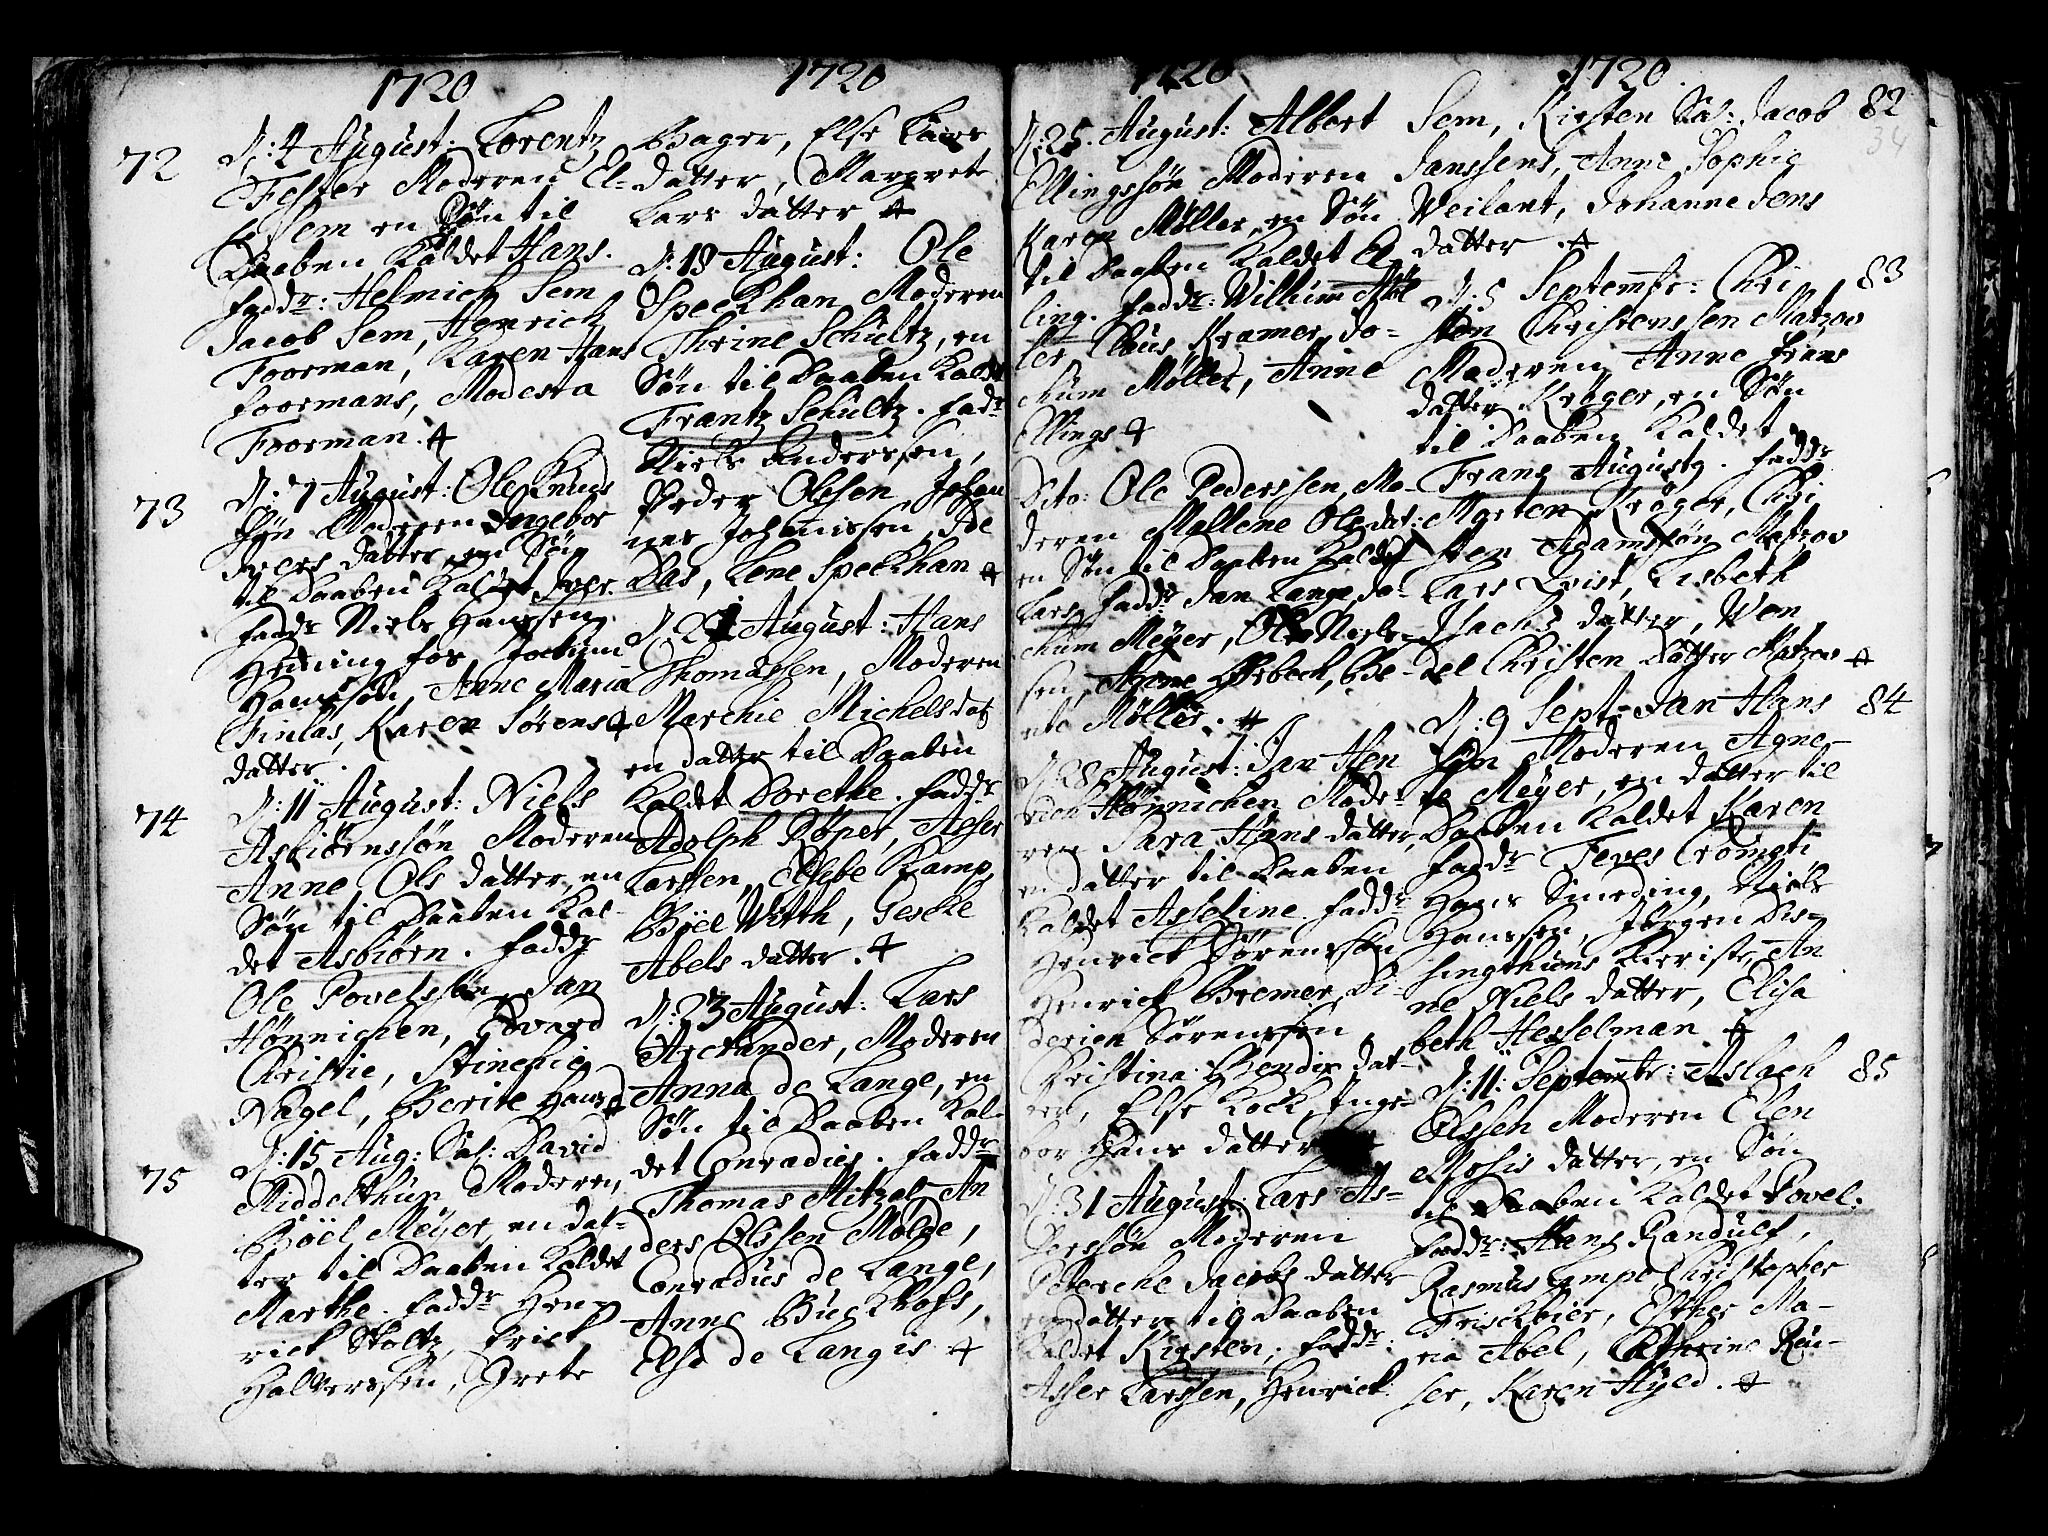 1720
72
D: 4 August: Lorentz
Fester Moderen El-
Sem en Søn til
Daaben Kaldet Hans.
fadd: Helmich Sem
Jacob Sem, Henrich
Foorman, Karen Hans
foormans, Modesta
Foorman.
73
D: 7 August: Ole Knuds
Søn Moderen Ingebor
Ivers datter, en Søn
til Daaben Kaldet Iver.
fadd Niels Hanssen
Henning fos, Jochum
Hanssøn, Anne Maria
Finlas, Karen Sørens
datter.
74
D: 11 August: Niels
Asbiørnssøn Moderen
Anne Ols datter, en
Søn til Daaben Kal-
det Asbiørn. fadd
Ole Povelssøn, Jan
Hønnichen, Edvard
Christie, Stinchie
Nagel, Berite Hans
75
D: 15 Aug: Sal: David
Middelthun Moderen,
Bøel Meÿer, en dat-
ter til Daaben Kaldet
Marthe. fadd Hen-
rich Stoltz, Erich
Halverssen, Grete
1720
Bager, Else Lars
datter, Margrete
Lars datter
D: 13 August: Ole
Speckhan Moderen
Thrine Schultz, en
Søn til Daaben Kaldt
Frantz Schultz. fadr
Niels Anderssen,
Peder Olesen, Johan
nes Johanissen, Ide
Das, Lene Speckhan
D: 21 August: Hans
Thomassen, Moderen
Marchie Michels dat
en datter til Daaben
Kaldet Dorethe. fadd
Adolph Røper, Asser
Larssen, Wibe Kamp,
Bøel Witth, Geseke
Abels datter.
D: 23 August: Lars
Arctander, Moderen
Anna de Lange, en
Søn til Daaben Kal-
det Conradies. fadd
Thomas Mitzel, An
ders Olssen Molde,
Conradus de Lange,
Anne Buckhofs,
Else de Langis
1720
D: 25. August: Albert
Ellingssøn Moderen
Karen Møller, en Søn
til Daaben Kaldet El
ling. fadd: Willum Møl
ler Claus Kramer, Jo-
chum Møller, Anne
Ellings
Dito: Ole Pederssen, Mo-
deren Mallene Ols dat:
en Søn til Daaben Kaldet
Lars, fadd Jan Lange, Jo-
chum Meÿer, Ole Niels-
sen, Anne Ørbech, Be-
nte Møller.
D: 28 August: Jan Hen
rich Hønnichen, Mode-
ren Sara Hans datter,
en datter til Daaben
Kaldet Asseline fadd
Henrich Sørenssøn
Henrich Bremer, Di-
derich Sørenssen
Christina Bendix dat-
ter, Else Kock, Inge-
bor Hans datter
D: 31 August: Lars As-
serssøn Moderen
Peterche Jacobs datter
en datter til Daaben
Kaldet Kirsten, fadd:
Asser Larssen, Henrich
1720
82
34
Sem, Kirsten Sal: Jacob
Janssens, Anne Sophie
Weilant, Johanne Jens
datter.
83
D: 5 Septembr: Chri
sten Christenssen Matzow
Moderen Anne frans
datter Krøger, en Søn
til Daaben Kaldet
Frans August. fadd
Morten Krøger, Chri
sten Adamssøn Matzow
Lars Qvist, Lisbeth
Jsachs datter, Wen
del Christen datter Matzow
84
D: 9 Sept: Jan Hans
søn Moderen Agne-
te Meÿer, en datter til
Daaben Kaldet Karen
fadd Teves Crometi
Hans Smeding, Niels
Hanssen, Jørgen Dis-
singthuns Kierist, An
ne Niels datter, Elisa
beth Hesselman
85
D: 11: Septembr: Aslach
Olssen Moderen Elen
Mosis datter, en Søn
til Daaben Kaldet Povel.
fadd: Hans Randulf,
Rasmus Lampe Christopher
Frischbier, Esther Ma-
ria Abel, Cathrine Reu-
ser, Karen Hÿed.